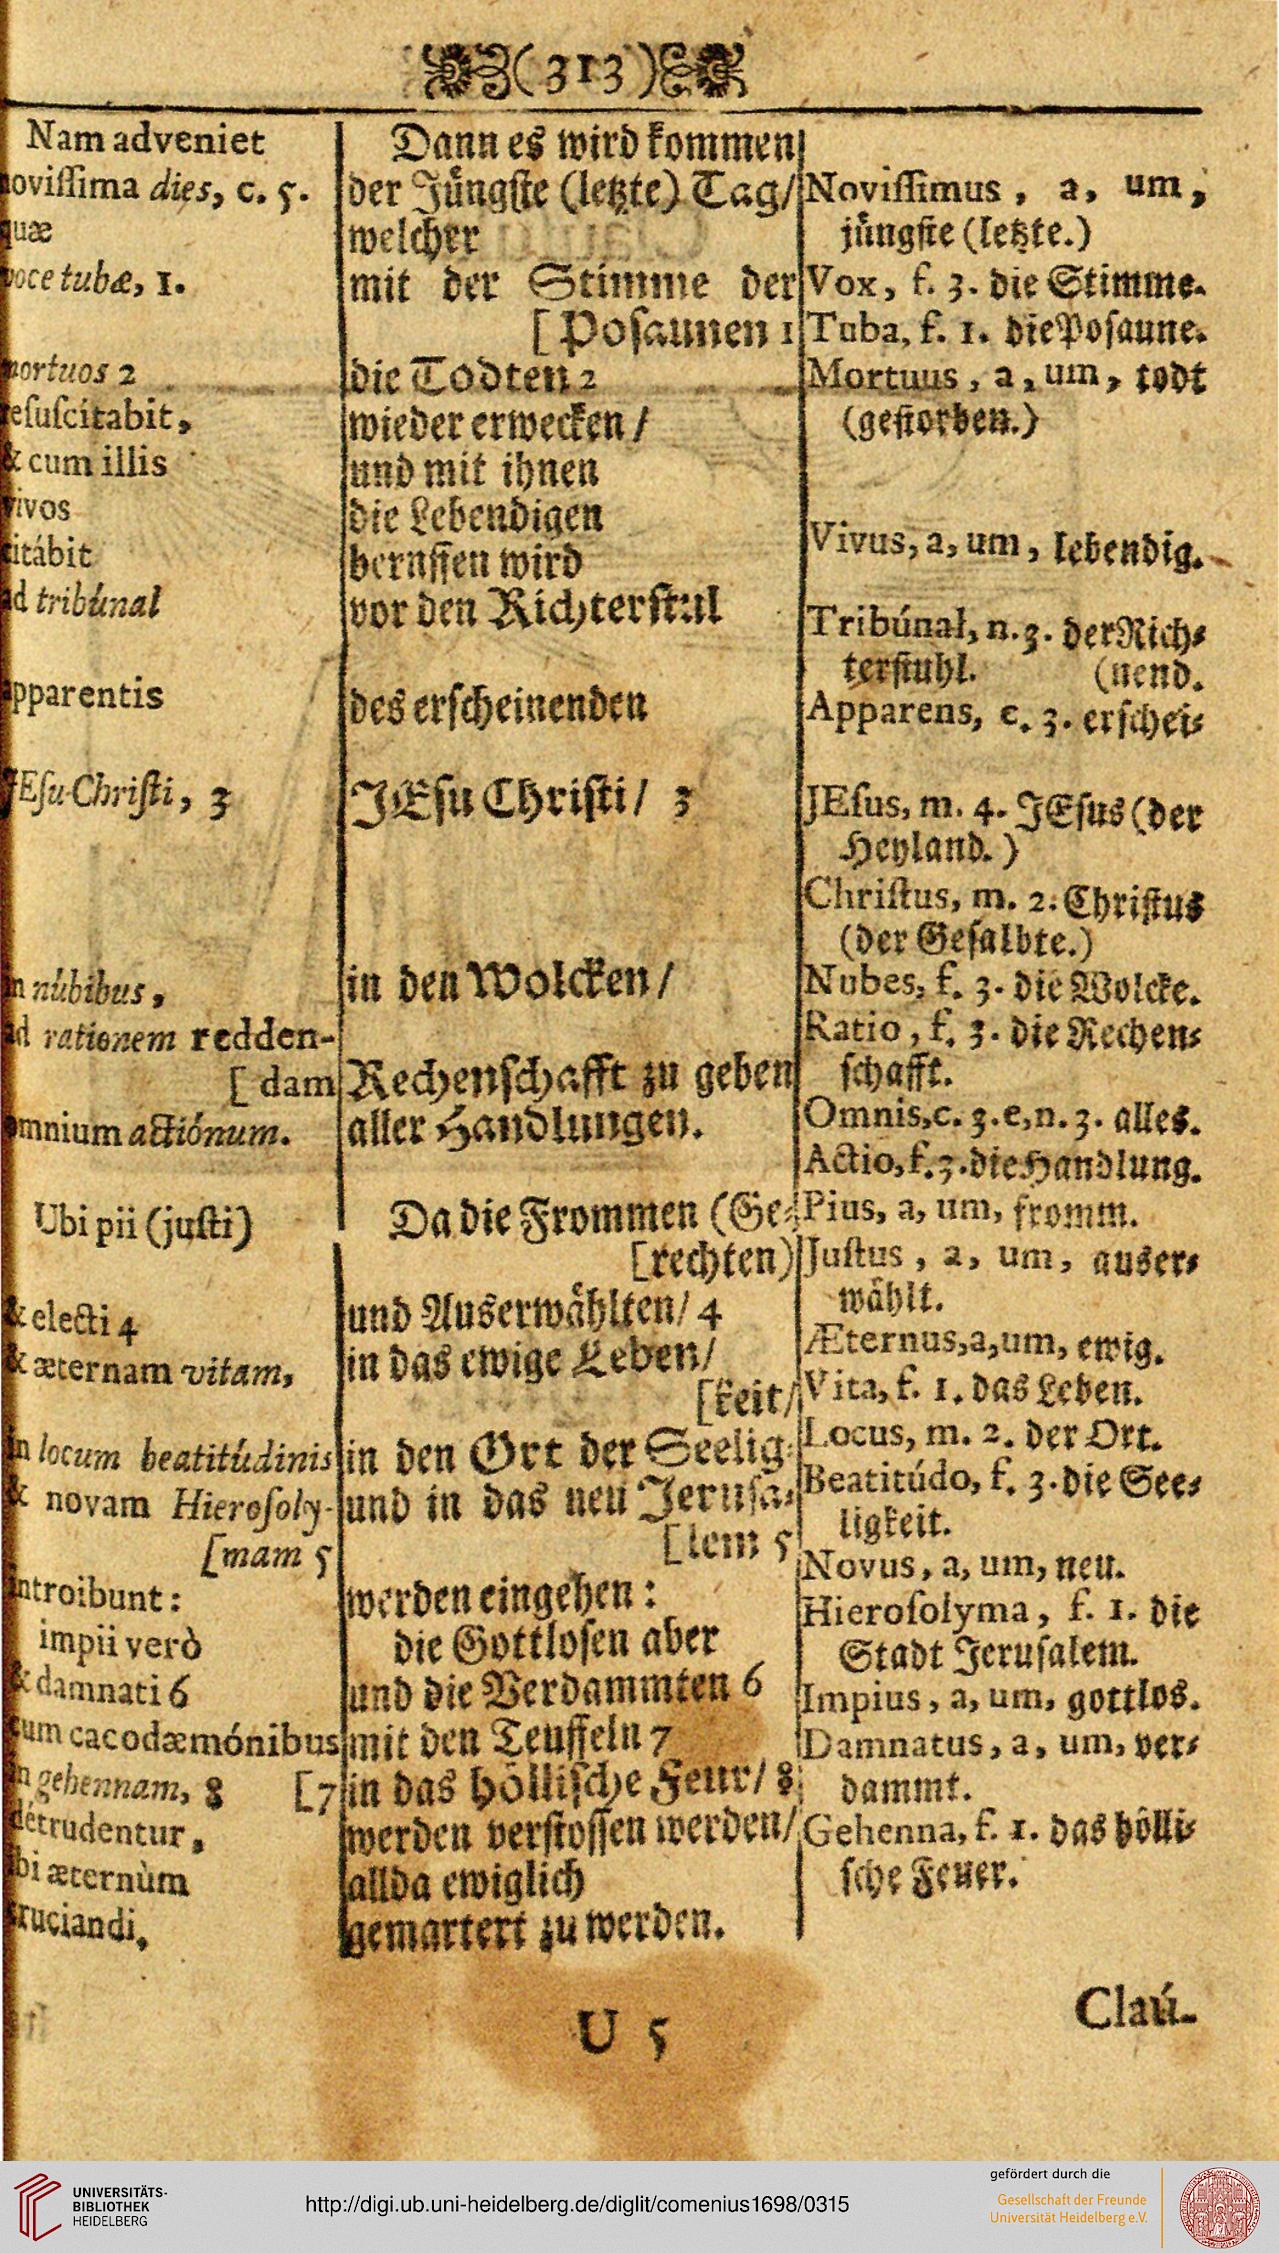 (313)
Nam adveniet
noviſſima dies, c. 5.
quæ
voce tubæ, 1.
mortuos 2
reſuſcitabit,
& cum illis
vivos
citábit
ad tribúnal
apparentis
JEſu-Chriſti, 3
in núbibus,
ad rationem redden-
[dam
omnium actiónum.
Ubi pii (juſti)
& electi 4
& æternam vitam,
in locum beatitúdinis
& novam Hieroſoly-
[mam 5
introibunt:
impii verò
& damnati 6
cum cacodæmónibus
in gehennam, 8 [7
détrudentur,
ibi æternùm
cruciandi.
Dann es wird kommen
der Jüngſte (letzte) Tag/
welcher
mit der Stimme der
[Poſaunen 1
die Todten 2
wieder erwecken/
und mit ihnen
die Lebendigen
beruffen wird
vor den Richterſtul
des erſcheinenden
JEſu Chriſti/ 3
in den Wolcken/
Rechenſchafft zu geben
aller Handlungen.
Da die Frommen (Ge⸗
[rechten)
und Auserwählten/ 4
in das ewige Leben/
[keit/
in den Ort der Seelig⸗
und in das neu Jeruſa⸗
[lem 5
werden eingehen:
die Gottloſen aber
und die Verdammten 6
mit den Teuffeln 7
in das hölliſche Feur/ 8
werden verſtoſſen werden/
allda ewiglich
gemartert zu werden.
Noviſſimus, a, um,
jüngſte (letzte.)
Vox, f. 3. die Stimme.
Tuba, f. 1. die Poſaune.
Mortuus, a, um, todt
(geſtorben.)
Vivus, a, um, lebendig.
Tribúnal, n. 3. der Rich⸗
terſtuhl. (nend.
Apparens, c. 3. erſchei⸗
JEſus, m. 4. JEſus (der
Heyland.)
Chriſtus, m. 2. Chriſtus
(der Geſalbte.)
Nubes, f. 3. die Wolcke.
Ratio, f. 3. die Rechen⸗
ſchafft.
Omnis, c. 3. e, n. 3. alles.
Actio, f. 3. die Handlung.
Pius, a, um, fromm.
Juſtus, a, um, auser⸗
wählt.
Æternus, a, um, ewig.
Vita, f. 1. das Leben.
Locus, m. 2. der Ort.
Beatitúdo, f. 3. die See⸗
ligkeit.
Novus, a, um, neu.
Hieroſolyma, f. 1. die
Stadt Jeruſalem.
Impius, a, um, gottlos.
Damnatus, a, um, ver⸗
dammt.
Gehenna, f. 1. das hölli⸗
ſche Feuer.
U 5
Claú-
UNIVERSITÄTS-
BIBLIOTHEK
HEIDELBERG
http://digi.ub.uni-heidelberg.de/diglit/comenius1698/0315
gefördert durch die
Gesellschaft der Freunde
Universität Heidelberg e.V.